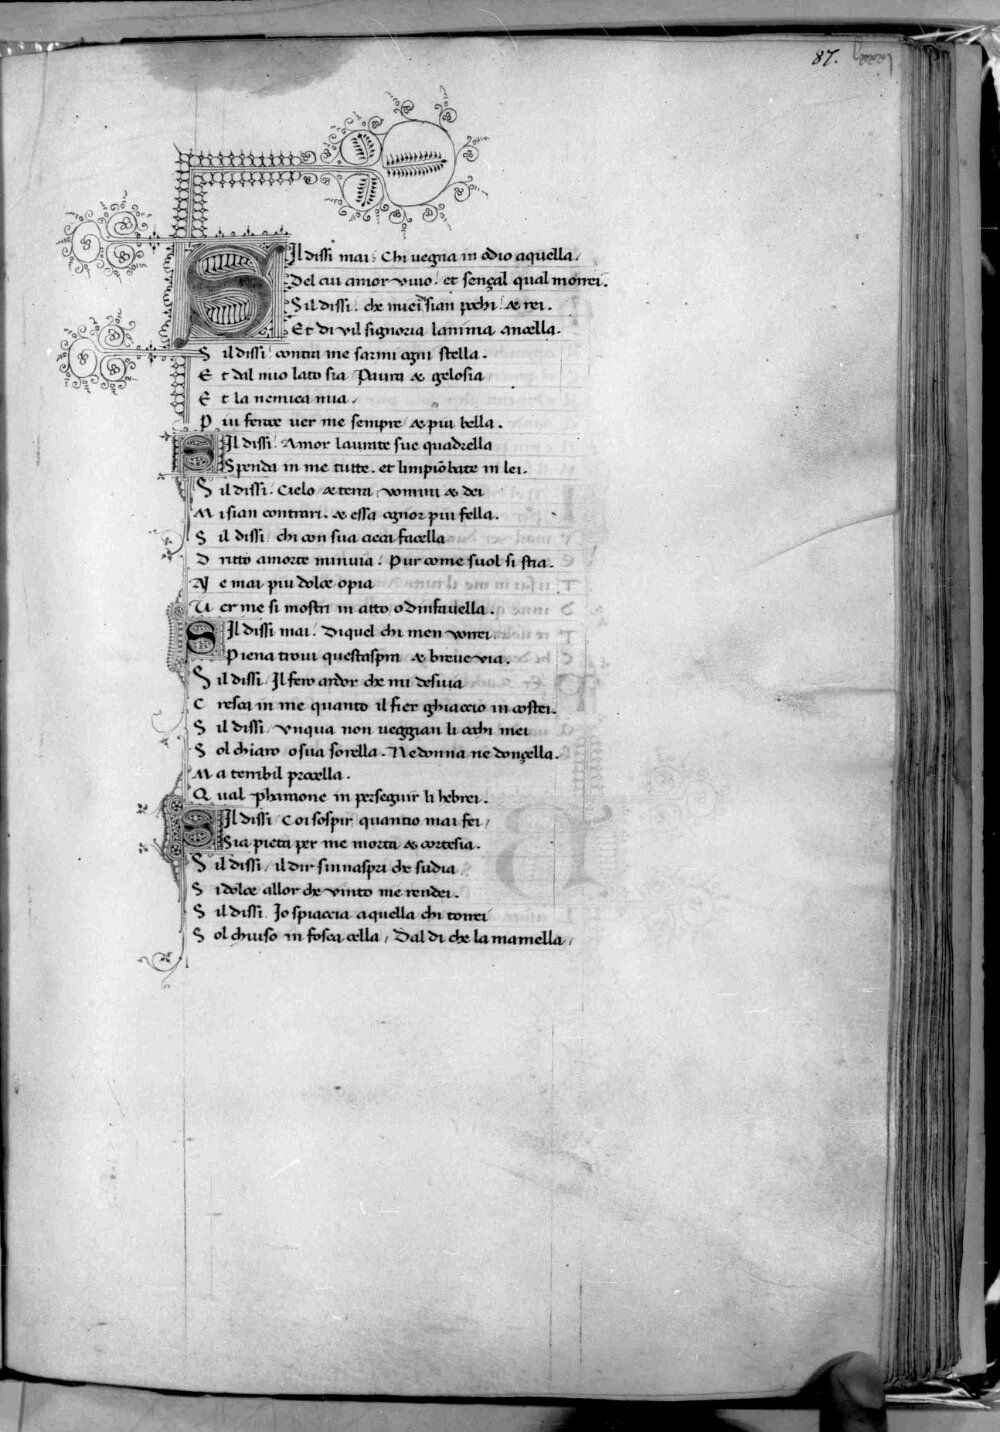 87.
SIl dissi mai! Chi uegna in odio aquella/
Del cui amor viuo! et sençal qual morrei.
Sil dissi! che miei sian pochi! & rei.
Et di vil signoria lamima ancella.
S il dissi! contra me sarmi ogni stella.
E t dal mio lato sia Paura & gelosia
E t la nemica mia/
P iu feroce uer me sempre & piu bella.
SIl dissi! Amor laurate sue quadrella
Spenda in me tutte. et limpiōbate in lei.
S il dissi! Cielo & terra/ vomini & dei
M i sian contrari. & essa ognor piu fella.
S il dissi/ chi con sua cieca facella
D ritto amorte minuia! Pur come suol si stia.
N e mai piu dolce opia
U er me si mostri in atto odinfauella.
SIl dissi mai! Diquel chi men vorrei
Piena troui questaspra & breue via.
S il dissi/ Il fero ardor che mi desuia
C resca in me quanto il fier ghiaccio in costei.
S il dissi/ vnqua non ueggian li occhi mei
S ol chiaro osua sorella. Nedonna ne donçella.
M a terribil procella.
Q ual pharaone in perseguir li hebrei.
SIl dissi/ Coi sospir quantio mai fei/
Sia pieta per me morta & cortesia.
S il dissi/ il dir sinnaspri che sudia
S i dolce allor che vinto me rendei.
S il dissi/ Io spiaccia aquella chi torrei
S ol chiuso in fosca cella/ Dal di che la mamella/